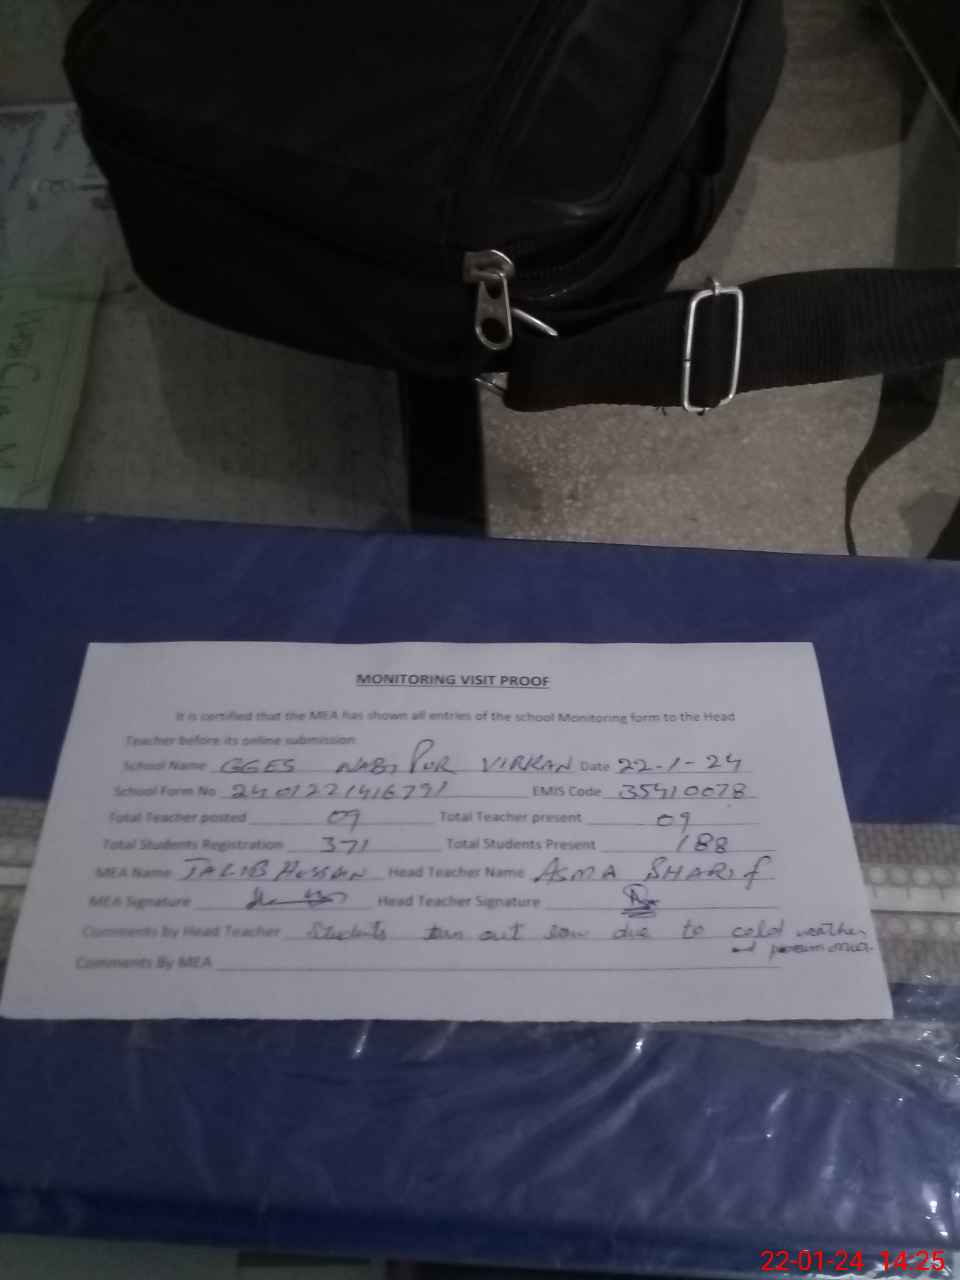 MONITORING VISIT PROOF
It is certified that the MEA has shown all entries of the school Monitoring form to the Head
Teacher before its online submission
School Name GGES NABI PUR VIRKAN Date 22-1-24
School Form No EMIS Code 35410078
Total Teacher posted 09 Total Teacher present 09
Total Students Registration 371 Total Students Present 188
MEA Name TALIB Hussain Head Teacher Name ASMA SHARIf
MEA Signature Head Teacher Signature
Comments by Head Teacher Students turn out low due to cold weather
and
Comments By MEA
22-01-24 14:25